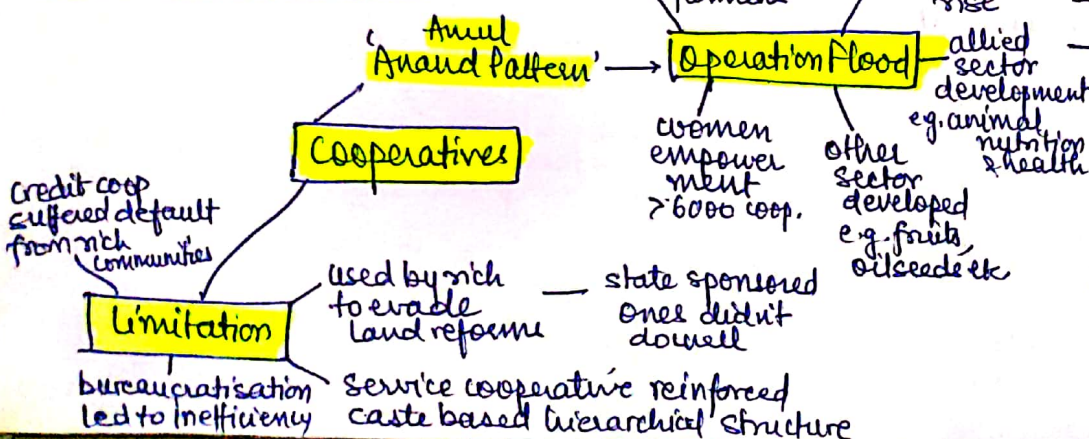 rise
Amul
'Anand Pattern'
Operation Flood
allied
sector
development
e.g. animal
nutrition
& health
women
empower
ment
>6000 coop.
other
sector
developed
e.g. fruits,
oilseeds etc
Cooperatives
credit coop
suffered default
from rich
communities
Limitation
used by rich
to evade
Land reforms
state sponsored
ones didn't
do well
bureaucratisation
led to inefficiency
service cooperative reinforced
caste based hierarchical structure